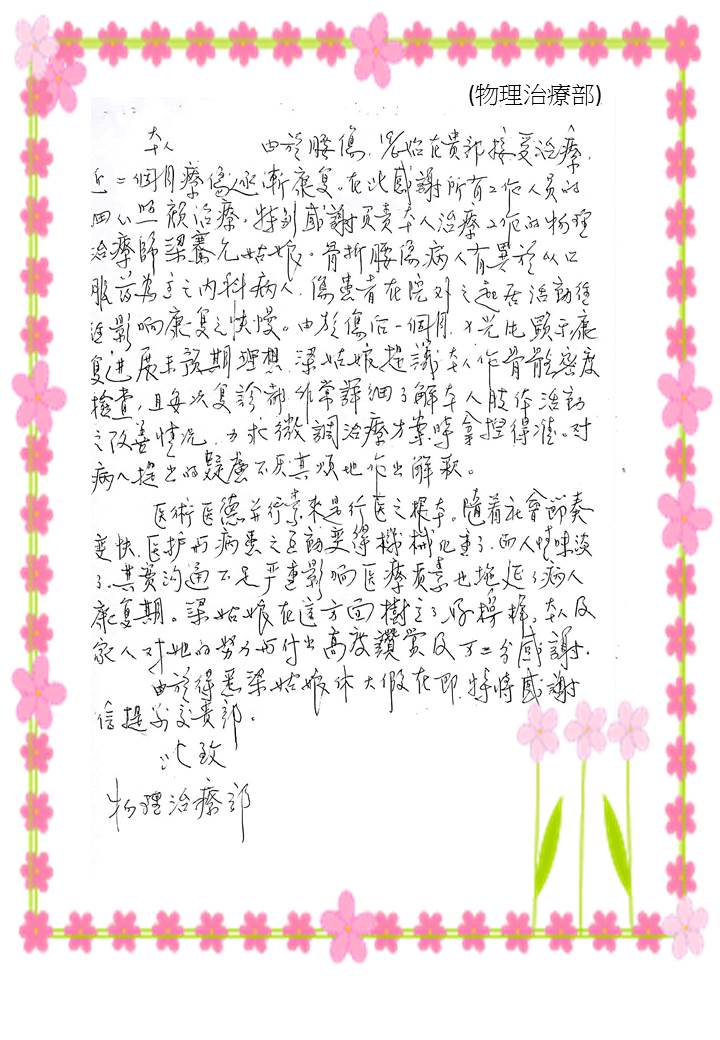 (物理治療部)
本人 由於腰傷,開始在貴部接受治療,
近二個月療傷逐漸康复。在此感謝所有工作人員的
細心照顧治療。特別感謝負責本人治療工作的物理
治療師梁騫允姑娘。骨折腰傷病人有異於以口
服药為主之内科病人,傷患者在院外之起居活動往
往影响康复之快慢。由於傷后一個月,X光片顯示康
复進展未預期理想,梁姑娘提議本人作骨骼密度
檢查,且每次复診都非常詳細了解本人肢体活動
之改善情况,力求微調治療方案時拿捏得准。对
病人提出的疑慮不厌其煩地作出解釈。
医術医德并行素來是行医之根本。隨着社會節奏
變快,医护与病患之互動變得機械化事了,而人情味淡
了。其實沟通不足严重影响医療質素也拖延了病人
康复期。梁姑娘在這方面樹立了好榜样。本人及
家人对她的努力与付出高度讚赏及万二分感謝。
由於得悉梁姑娘休大假在即,特將感謝
信提前交貴部。
此致
物理治療部